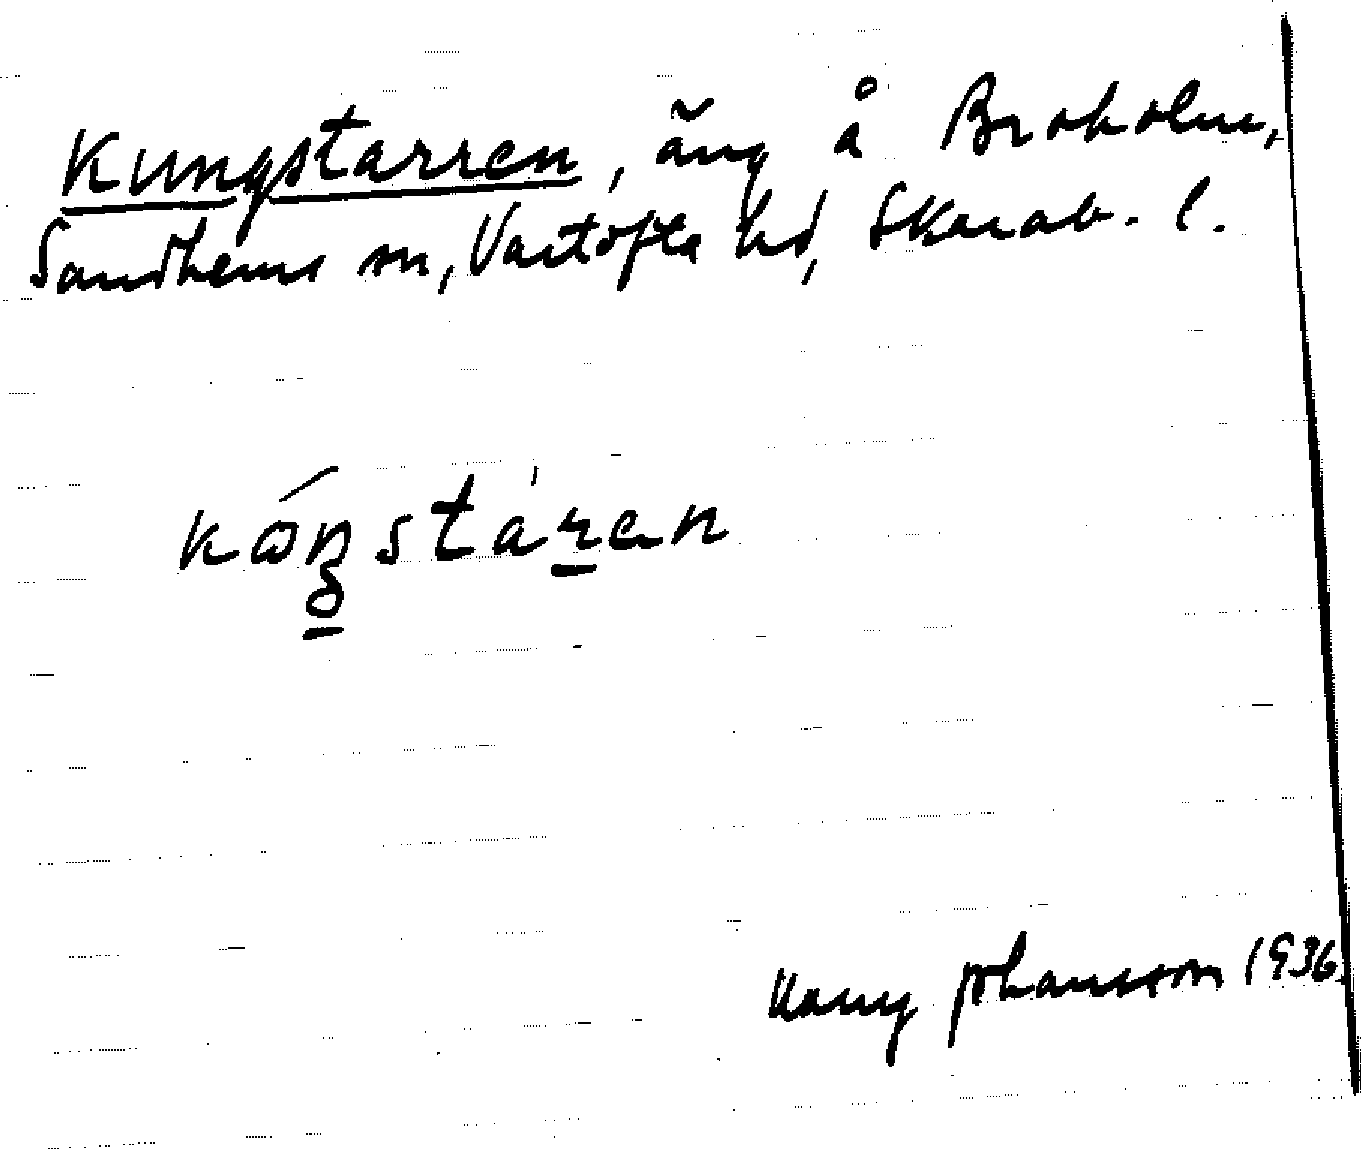 Kungstarren, äng å Broholm,
Sandhems sn, Vartofta hd, Skarab. l.
kɷ́ŋstàren
Johansson 1936